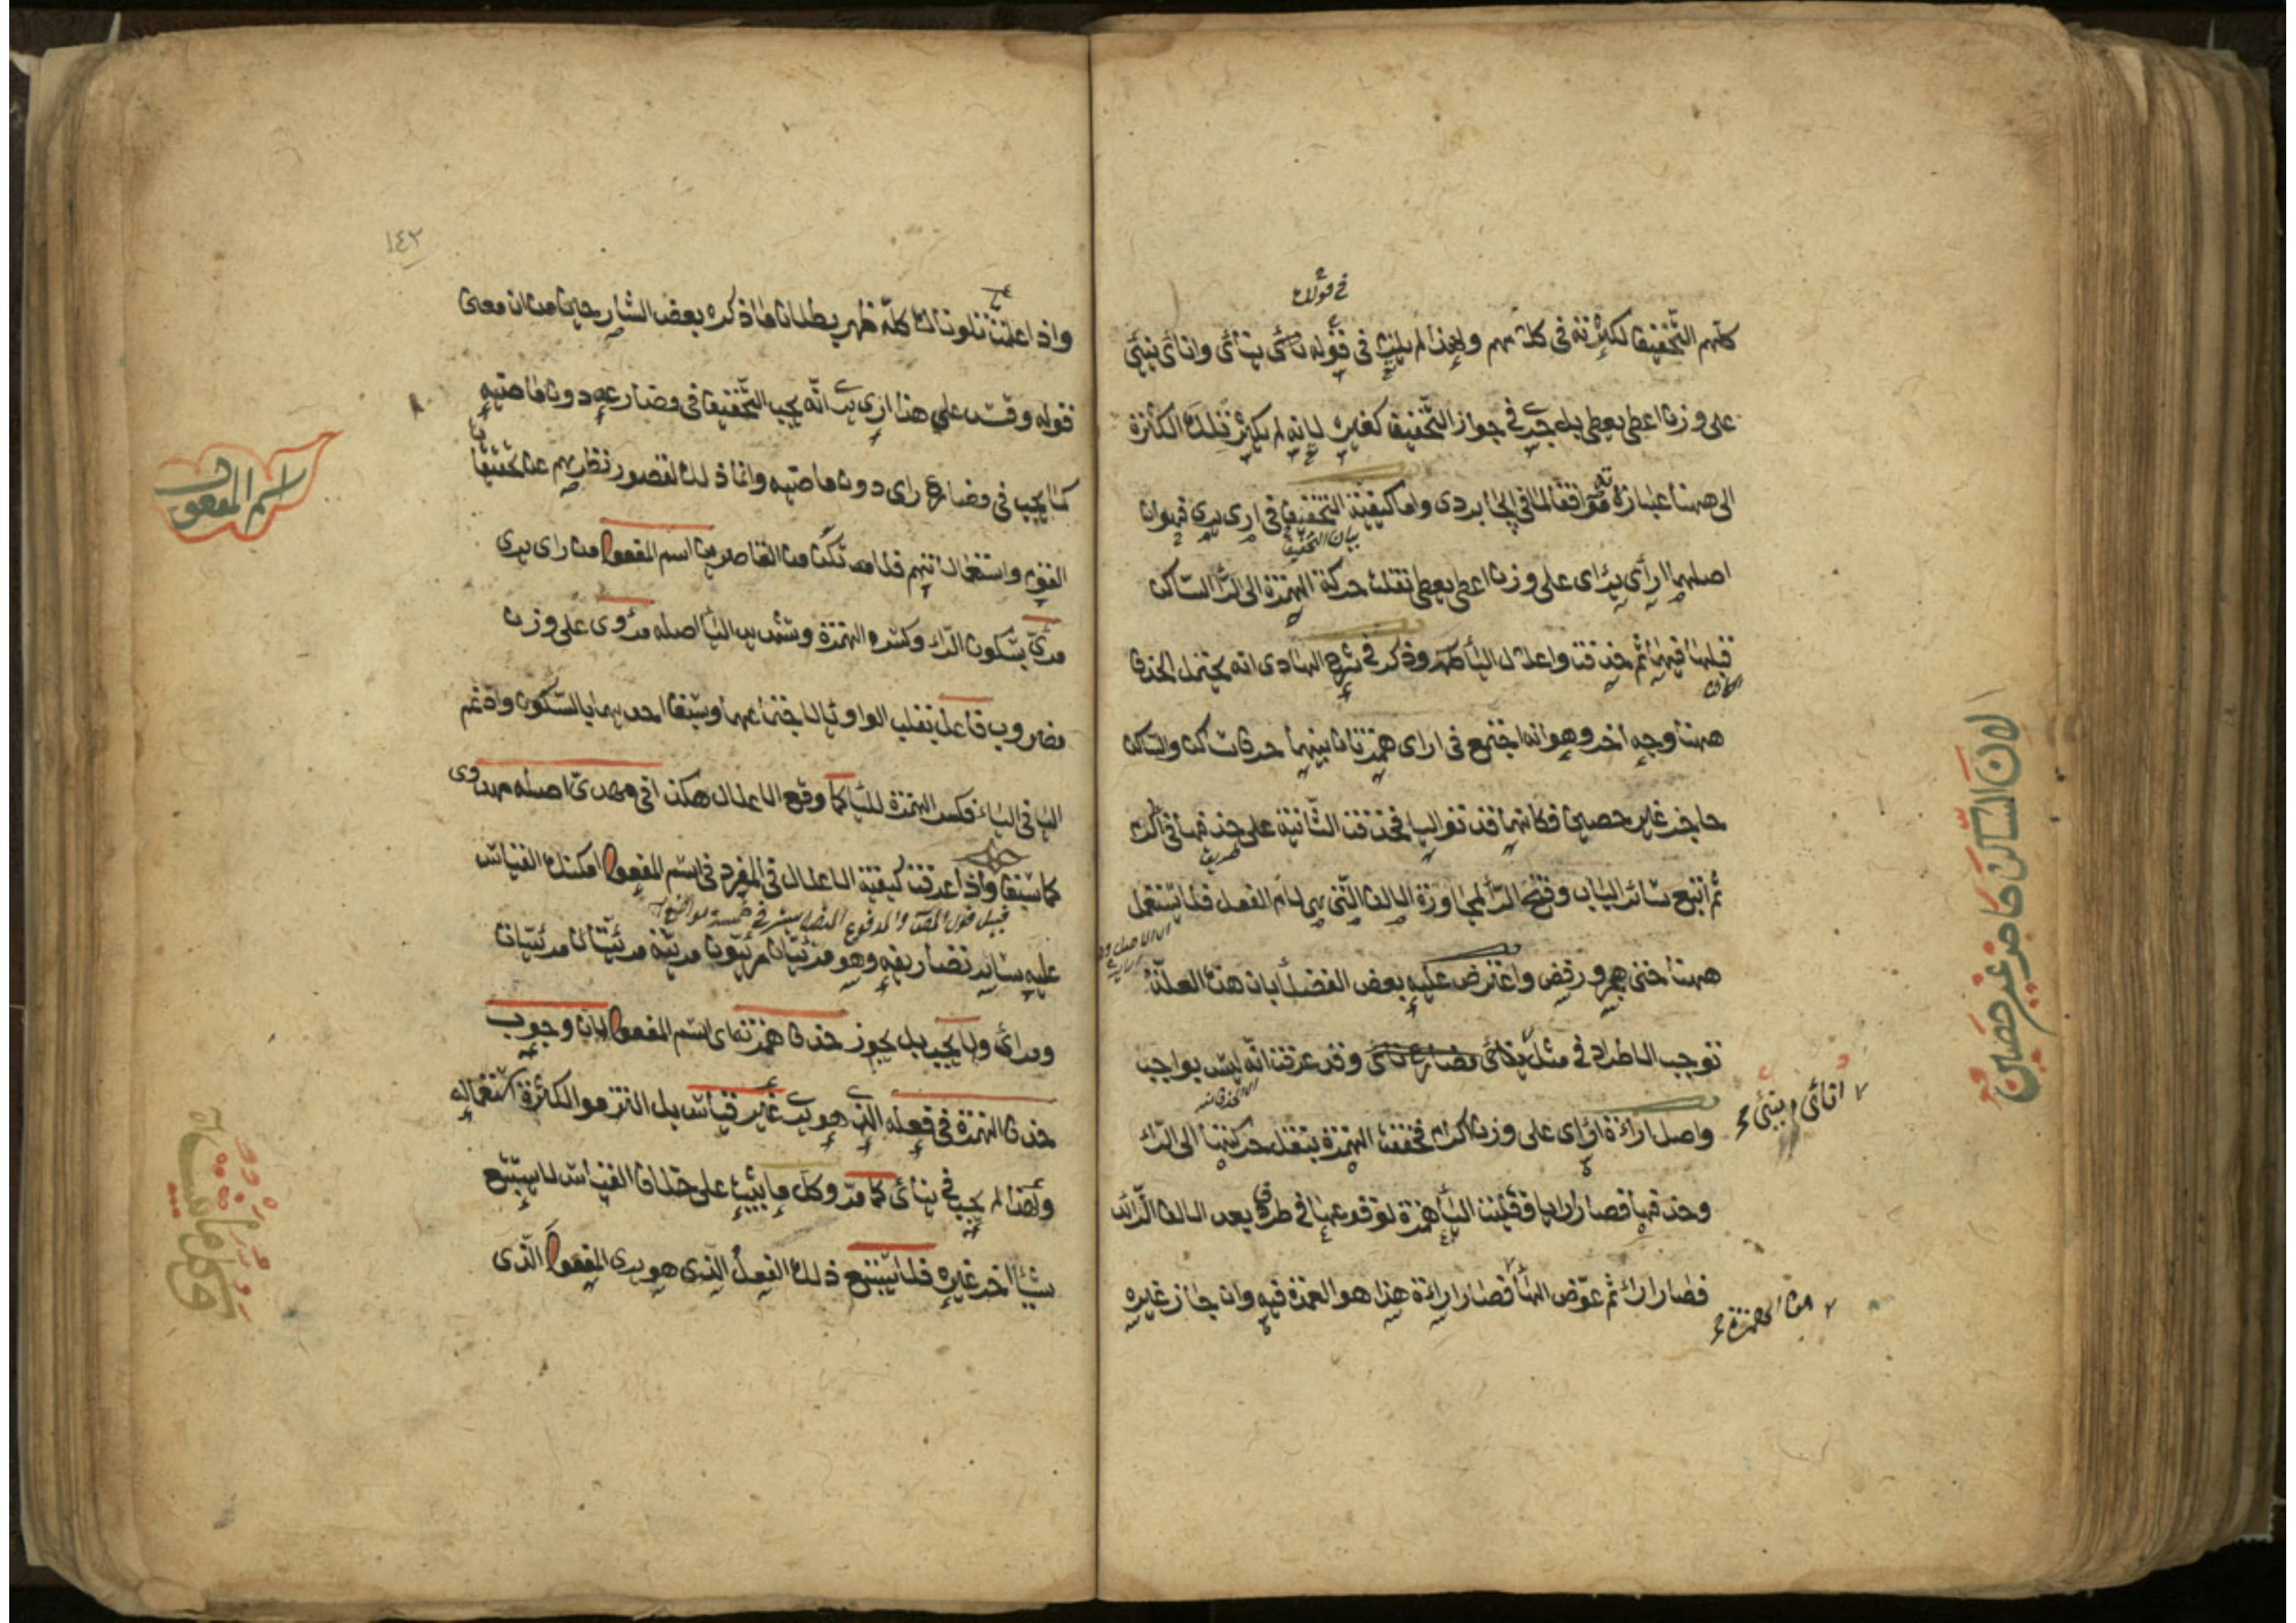 في قولك
كلهم التخفيف لكثرته في كلامهم ولهذا لم يلزم في قوله نأى ينأى وانأى ينئي
على وزن اعطى يعطي بل جرى في جواز التخفيف كغيره لانه لم يكثر تلك الكثرة
الى هنا عبارته موافقا لما في الجاربردي واما كيفية التخفيف في ارى يري فهو ان
بيان التخفيف
اصلهما ارأى يرأي على وزن اعطى يعطي نقلت حركة الهمزة الى الراء الساكن
قبلها فيهما ثم حذفت واعلال الياء ظاهر وذكر في شرح الهادي انه يحتمل الحذف
ههنا وجه اخر وهو انه اجتمع في ارأى همزتان بينهما حرف ساكن والساكن
حاجز غير حصين فكانهما قد توالتا فحذفت الثانية على حذفها في اكرم
ثم اتبع سائر الباب وفتح الراء لمجاورة الالف التي هي لام الفعل فلا يستعمل
ههنا حتى هجر ورفض واعترض عليه بعض الفضلاء بان هذه العلة
توجب الاطراد في مثل ينأى مضارع نأى وقد عرفت انه ليس بواجب
واصل اراءة ارأاي على وزن اكرام فخففت الهمزة بنقل حركتها الى الراء
وحذفها فصار ارايا فقلبت الياء همزة لوقوعها في طرف بعد الالف الزائد
فصار اراء ثم عوض الهاء فصار اراءة هذا هو العمدة فيه وان جاز غيره
انأى ينئي
من الهمزة
لان الساكن حاجز غير حصين
١٤٣
واذا علمت ما تلونا لك كله ظهر بطلان ما ذكره بعض الشارحين من ان معنى
قوله وقس على هذا ارى يري انه يجب التخفيف في مضارعه دون ماضيه
كما يجب في مضارع رأى دون ماضيه وانما ذلك لقصور نظرهم عن تحقيق
اسم المفعول
القوم واستعمالاتهم فلا تكن من القاصرين اسم المفعول من رأى يرى
مرئي بسكون الراء وكسر الهمزة وتشديد الياء اصله مرؤوي على وزن
مضروب فاعل بقلب الواو ياء لاجتماعهما وسبق احديهما بالسكون وادغم
الياء في الياء فكسر الهمزة للياء كما وقع الاعلال هكذا في مهدي اصله مهدوي
كما سبق واذا عرفت كيفية الاعلال في المفرد في اسم المفعول امكنك القياس
عليه سائر تصاريفه وهو مرئيان مرئيون مرئية مرئيتان مرئيات
ومرائي ولا يجب بل يجوز حذف همزته اى اسم المفعول لان وجوب
حذف الهمزة في فعله الذي هو يرى غير قياس بل التزموا لكثرة استعماله
ولهذا لم يجب في ينأى كما مر وكل ما يثبت على خلاف القياس لا يستتبع
شيئا اخر غيره فلا يستتبع ذلك الفعل الذي هو يرى المفعول الذي